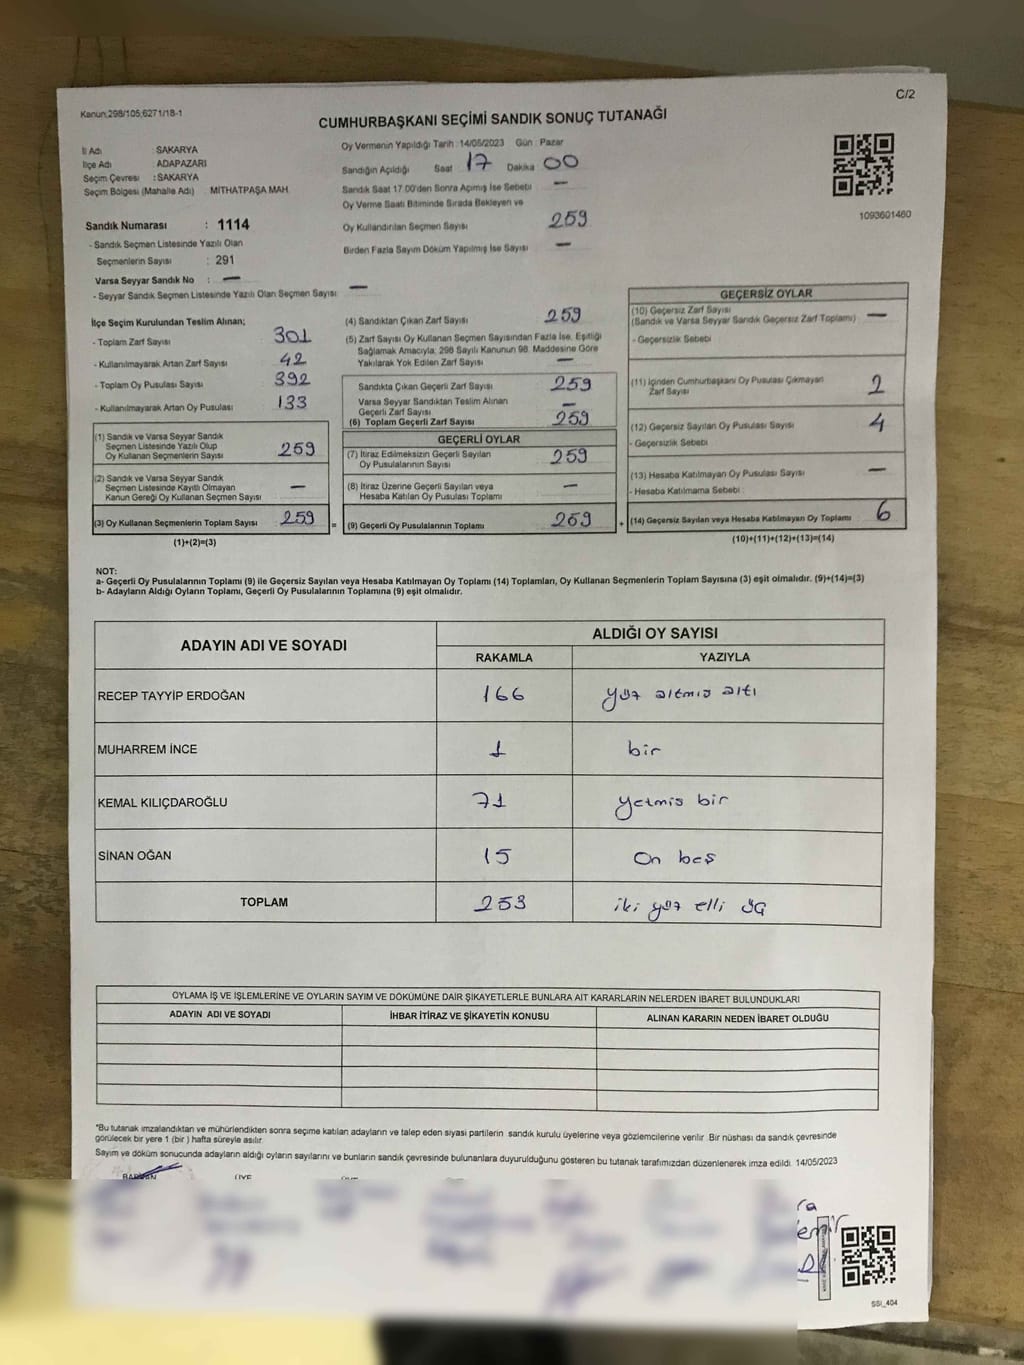 C/2
Kanun;298/105;6271/18-1
CUMHURBAŞKANI SEÇİMİ SANDIK SONUÇ TUTANAĞI
İl Adı : SAKARYA
İlçe Adı : ADAPAZARI
Seçim Çevresi : SAKARYA
Seçim Bölgesi (Mahalle Adı) : MİTHATPAŞA MAH.
Sandık Numarası : 1114
- Sandık Seçmen Listesinde Yazılı Olan
Seçmenlerin Sayısı : 291
Varsa Seyyar Sandık No : —
- Seyyar Sandık Seçmen Listesinde Yazılı Olan Seçmen Sayısı : —
Oy Vermenin Yapıldığı Tarih : 14/05/2023 Gün : Pazar
Sandığın Açıldığı Saat 17 Dakika 00
Sandık Saat 17.00'den Sonra Açımış İse Sebebi —
Oy Verme Saati Bitiminde Sırada Bekleyen ve
Oy Kullandırılan Seçmen Sayısı 259
Birden Fazla Sayım Döküm Yapılmış İse Sayısı —
1093601460
İlçe Seçim Kurulundan Teslim Alınan;
- Toplam Zarf Sayısı 301
- Kullanılmayarak Artan Zarf Sayısı 42
- Toplam Oy Pusulası Sayısı 392
- Kullanılmayarak Artan Oy Pusulası 133
(1) Sandık ve Varsa Seyyar Sandık
Seçmen Listesinde Yazılı Olup
Oy Kullanan Seçmenlerin Sayısı 259
(2) Sandık ve Varsa Seyyar Sandık
Seçmen Listesinde Kayıtlı Olmayan
Kanun Gereği Oy Kullanan Seçmen Sayısı —
(3) Oy Kullanan Seçmenlerin Toplam Sayısı 259
(1)+(2)=(3)
(4) Sandıktan Çıkan Zarf Sayısı 259
(5) Zarf Sayısı Oy Kullanan Seçmen Sayısından Fazla İse, Eşitliği
Sağlamak Amacıyla, 298 Sayılı Kanunun 98. Maddesine Göre
Yakılarak Yok Edilen Zarf Sayısı —
Sandıkta Çıkan Geçerli Zarf Sayısı 259
Varsa Seyyar Sandıktan Teslim Alınan
Geçerli Zarf Sayısı —
(6) Toplam Geçerli Zarf Sayısı 259
GEÇERLİ OYLAR
(7) İtiraz Edilmeksizin Geçerli Sayılan
Oy Pusulalarının Sayısı 259
(8) İtiraz Üzerine Geçerli Sayılan veya
Hesaba Katılan Oy Pusulası Toplamı —
= (9) Geçerli Oy Pusulalarının Toplamı 259 +
GEÇERSİZ OYLAR
(10) Geçersiz Zarf Sayısı —
(Sandık ve Varsa Seyyar Sandık Geçersiz Zarf Toplamı)
- Geçersizlik Sebebi
(11) İçinden Cumhurbaşkanı Oy Pusulası Çıkmayan
Zarf Sayısı 2
(12) Geçersiz Sayılan Oy Pusulası Sayısı 4
- Geçersizlik Sebebi
(13) Hesaba Katılmayan Oy Pusulası Sayısı —
- Hesaba Katılmama Sebebi :
(14) Geçersiz Sayılan veya Hesaba Katılmayan Oy Toplamı 6
(10)+(11)+(12)+(13)=(14)
NOT:
a- Geçerli Oy Pusulalarının Toplamı (9) ile Geçersiz Sayılan veya Hesaba Katılmayan Oy Toplamı (14) Toplamları, Oy Kullanan Seçmenlerin Toplam Sayısına (3) eşit olmalıdır. (9)+(14)=(3)
b- Adayların Aldığı Oyların Toplamı, Geçerli Oy Pusulalarının Toplamına (9) eşit olmalıdır.
ADAYIN ADI VE SOYADI ALDIĞI OY SAYISI
RAKAMLA YAZIYLA
RECEP TAYYİP ERDOĞAN 166 yüz altmış altı
MUHARREM İNCE 1 bir
KEMAL KILIÇDAROĞLU 71 yetmis bir
SİNAN OĞAN 15 On beş
TOPLAM 253 iki yüz elli üç
OYLAMA İŞ VE İŞLEMLERİNE VE OYLARIN SAYIM VE DÖKÜMÜNE DAİR ŞİKAYETLERLE BUNLARA AİT KARARLARIN NELERDEN İBARET BULUNDUKLARI
ADAYIN ADI VE SOYADI İHBAR İTİRAZ VE ŞİKAYETİN KONUSU ALINAN KARARIN NEDEN İBARET OLDUĞU
*Bu tutanak imzalandıktan ve mühürlendikten sonra seçime katılan adayların ve talep eden siyasi partilerin sandık kurulu üyelerine veya gözlemcilerine verilir. Bir nüshası da sandık çevresinde
görülecek bir yere 1 (bir ) hafta süreyle asılır.
Sayım ve döküm sonucunda adayların aldığı oyların sayılarını ve bunların sandık çevresinde bulunanlara duyurulduğunu gösteren bu tutanak tarafımızdan düzenlenerek imza edildi. 14/05/2023
BAŞKAN ÜYE ÜYE
SSI_404